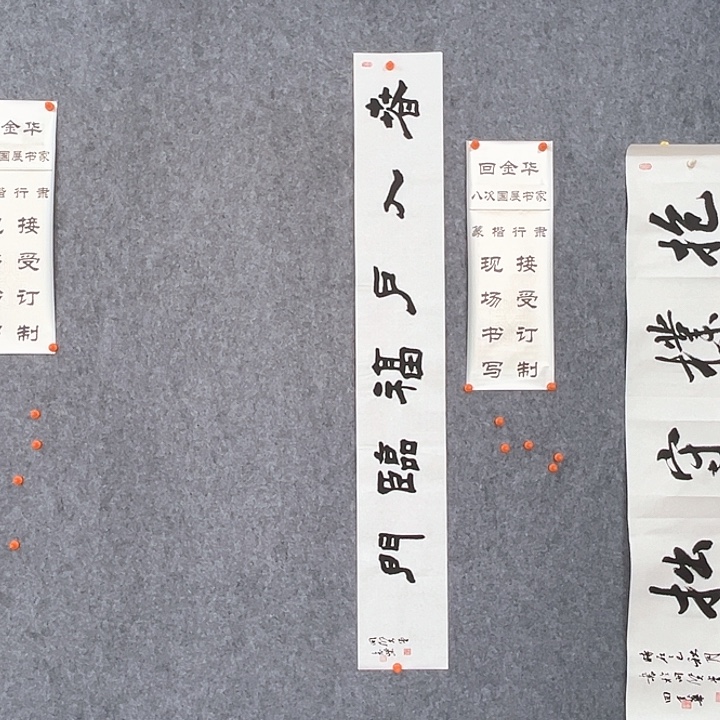 金华
国展书家
楷行隶
接受订制
春入戶福臨門
回金华
八次国展书家
篆楷行隶
现场书写
接受订制
抱樸守拙